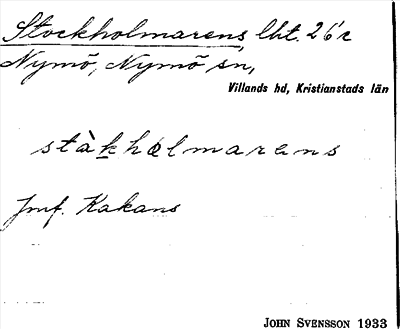 Stockholmarens, lht. 2 6/2
Nymö, Nymö sn,
Villands hd, Kristianstads län
stàkhɷlmarɘns
Jmf. Kakans
JOHN SVENSSON 1933